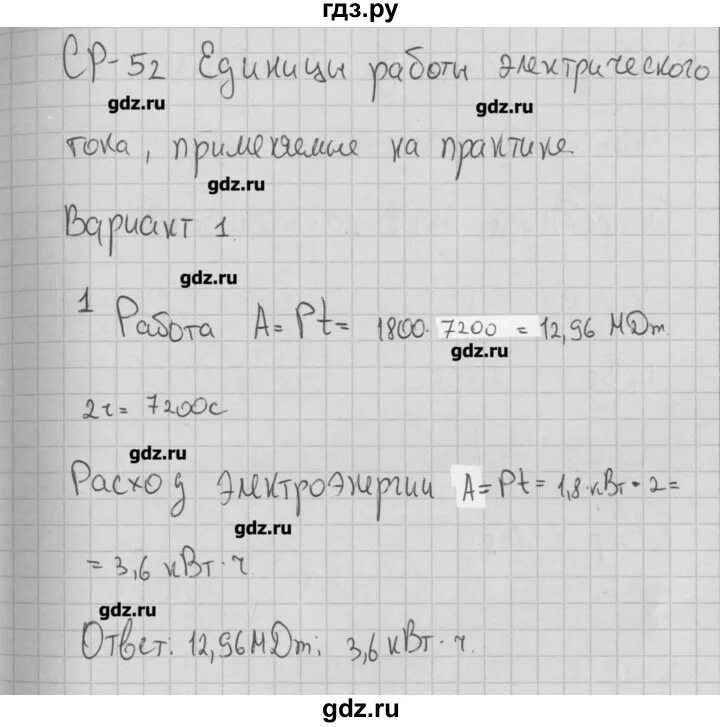 гдз.ру
СР-52 Единицы работы электрического
gdz.ru
gdz.ru
тока, применяемые на практике.
gdz.ru
Вариант 1
gdz.ru
1 Работа A = Pt = 1800 · 7200 = 12,96 МДж.
gdz.ru
2ч = 7200с
gdz.ru
Расход электроэнергии A = Pt = 1,8 кВт · 2 =
gdz.ru
= 3,6 кВт · ч
gdz.ru
Ответ: 12,96 МДж; 3,6 кВт · ч.
gdz.ru